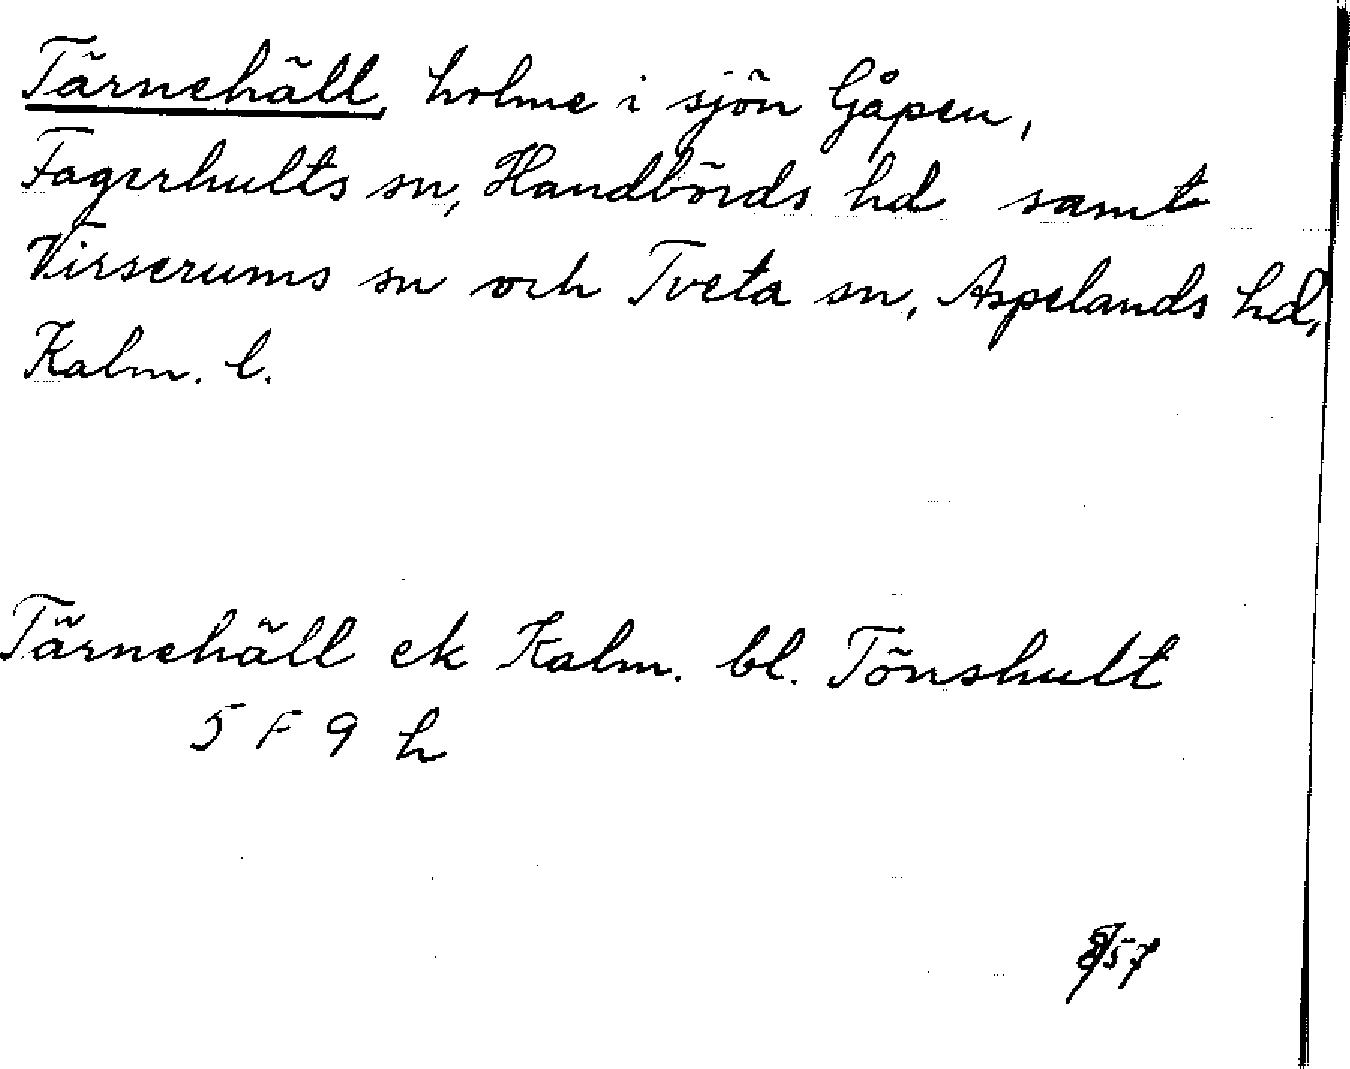 Tärnehäll, holme i sjön Gåpen,
Fagerhults sn, Handbörds hd samt
Virserums sn och Tveta sn, Aspelands hd,
Kalm. l.
Tärnehäll ek Kalm. bl. Tönshult
5 F 9 h